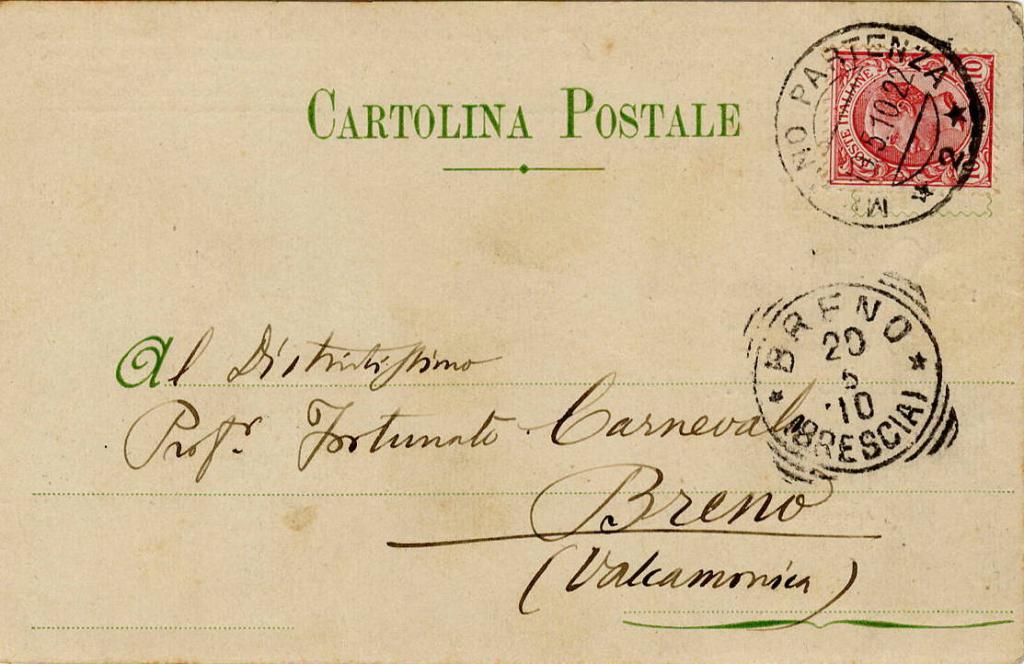 CARTOLINA POSTALE
MILANO PARTENZA ★ 2 ★
5.10.22
POSTE ITALIANE
10 10
BRENO
20
5
'10
(BRESCIA)
Al Distintissimo
Profr. Fortunato Carnevali
Breno
(Valcamonica)